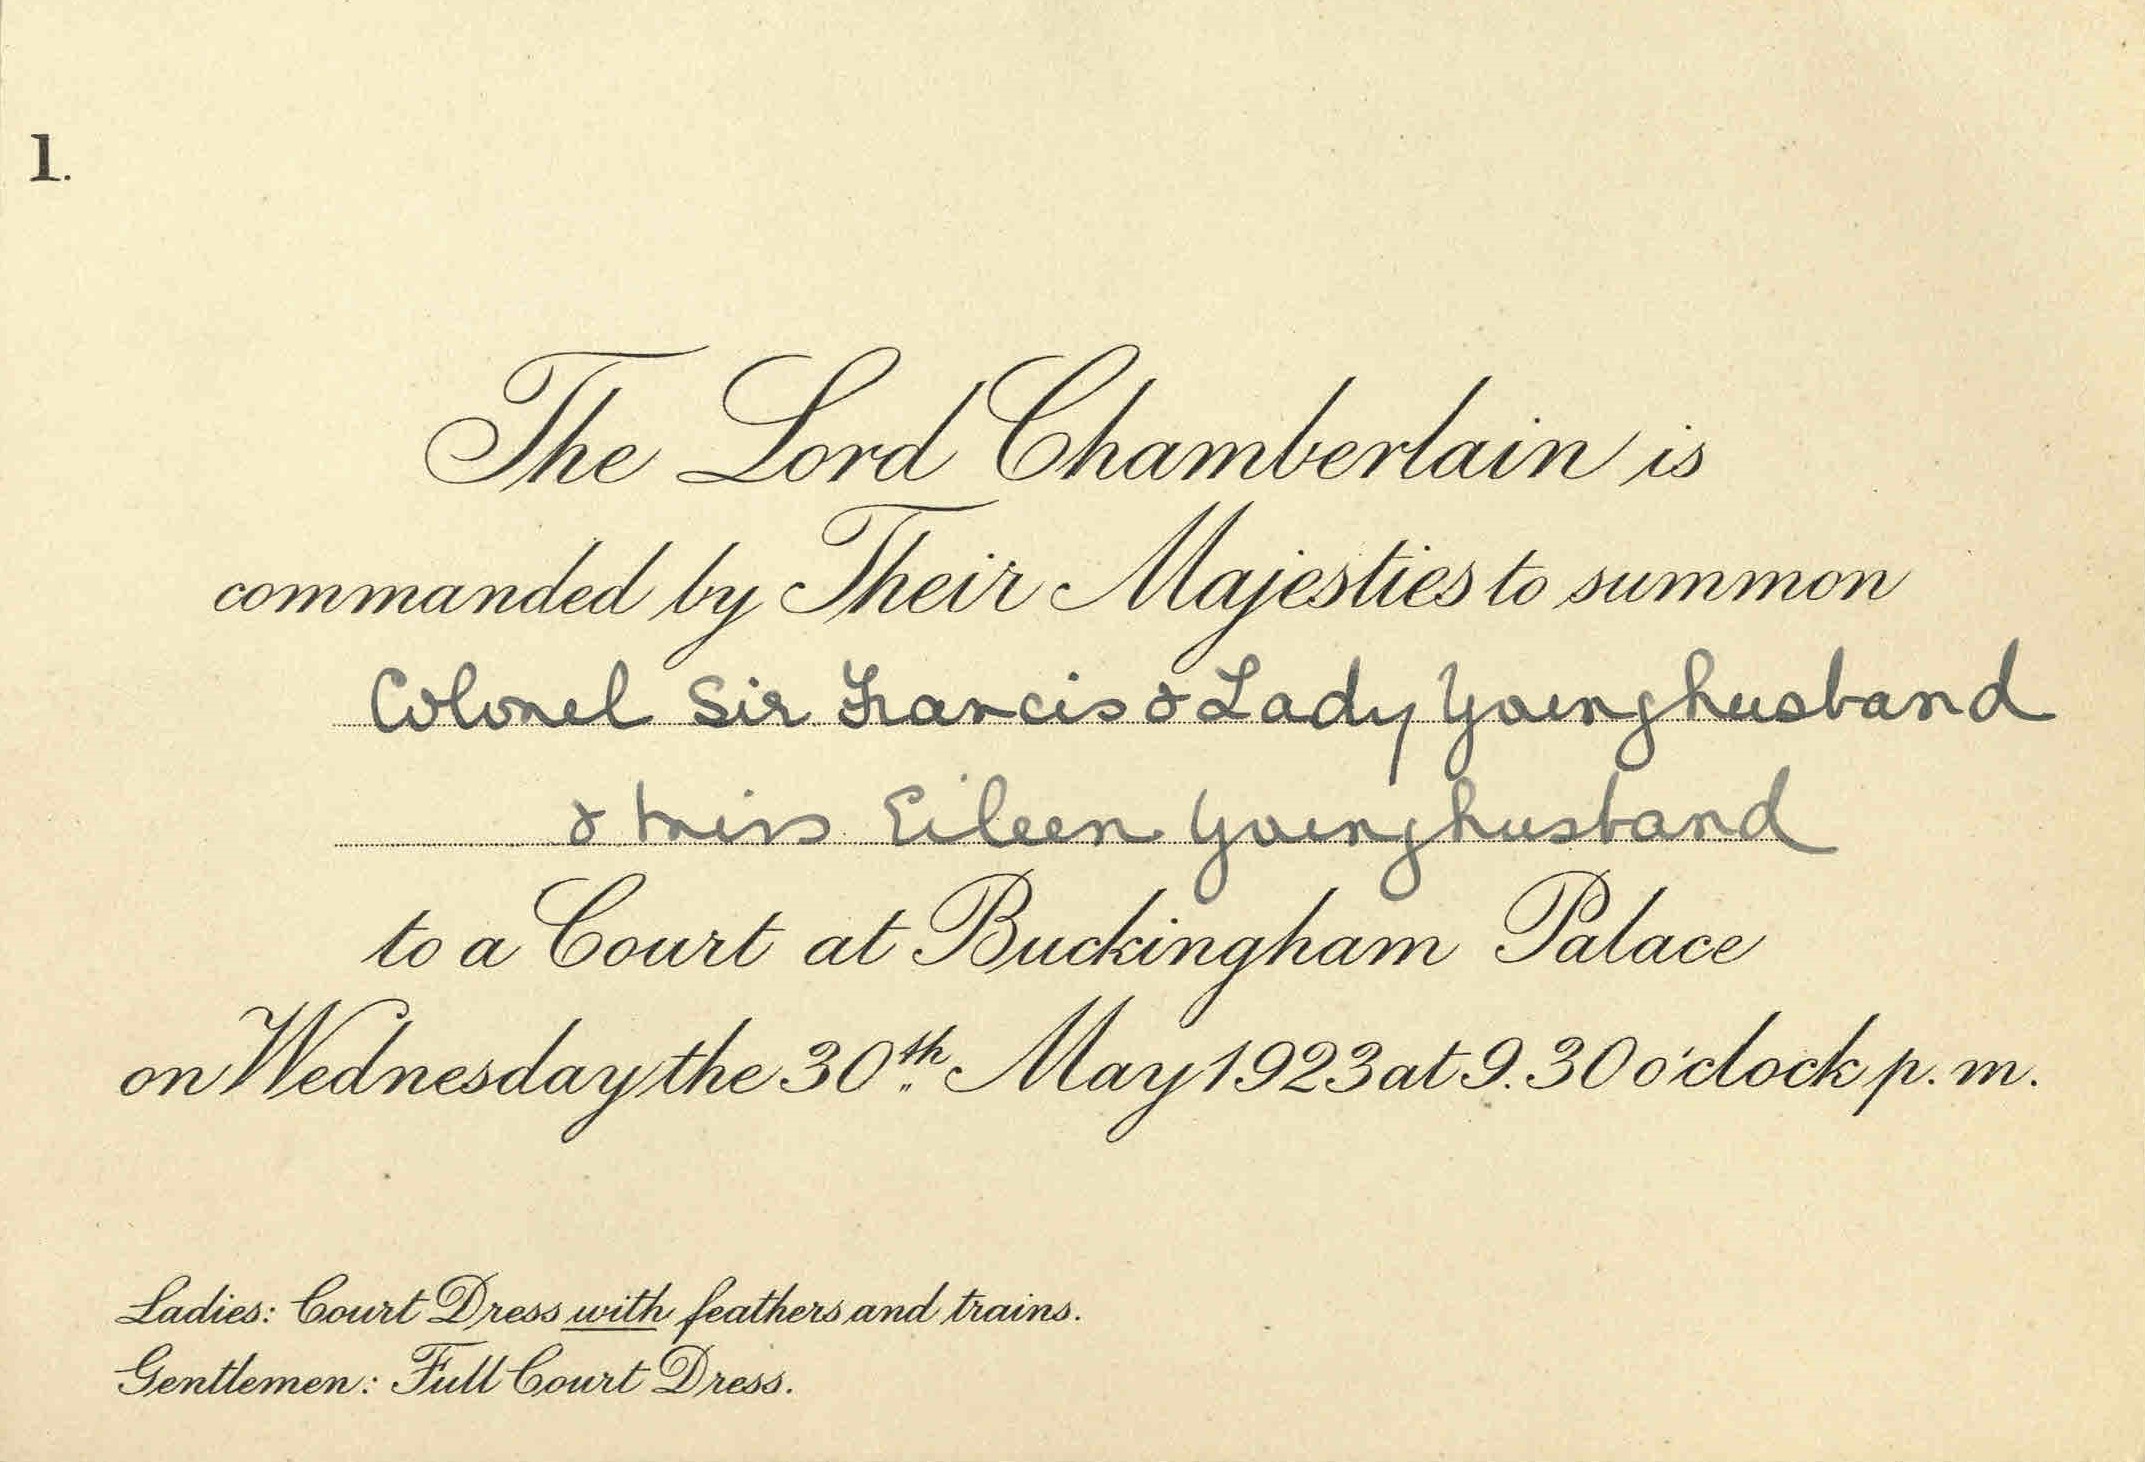 1.
The Lord Chamberlain is
commanded by Their Majesties to summon
Colonel Sir Francis & Lady Younghusband
& Miss Eileen Younghusband
to a Court at Buckingham Palace
on Wednesday the 30th May 1923 at 9.30 o'clock p.m.
Ladies: Court Dress with feathers and trains.
Gentlemen: Full Court Dress.